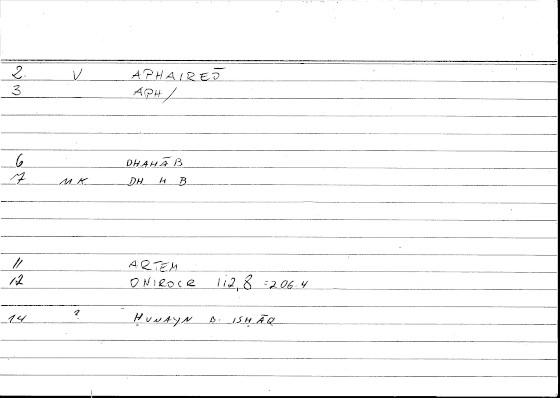 2 V APHAIREŌ
3 APH/
6 DHAHĀB
7 MK DH H B
11 ARTEM
12 ONIROCR 112,8 =206.4
14 ? ḤUNAYN B. ISḤĀQ